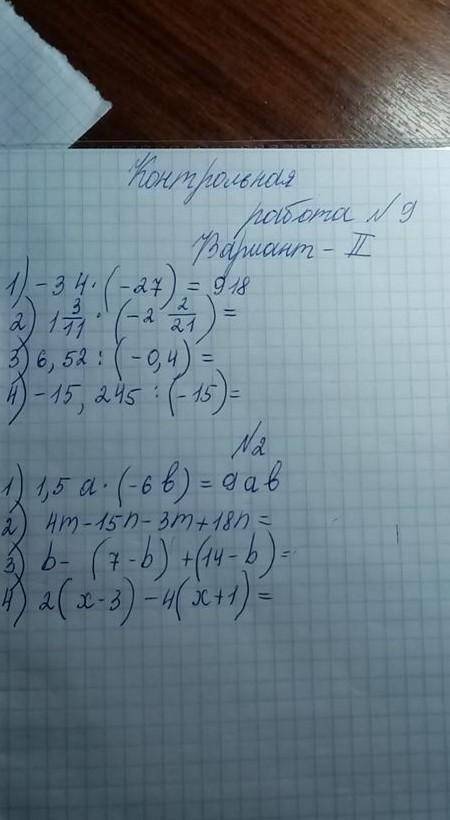 Контрольная
работа № 9
Вариант - II
1) -34 · (-27) = 918
2) 1 3/11 · (-2 2/21) =
3) 6,52 : (-0,4) =
4) -15,245 : (-15) =
№2
1) 1,5 a · (-6 b) = 9 a b
2) 4m - 15n - 3m + 18n =
3) b - (7 - b) + (14 - b) =
4) 2(x - 3) - 4(x + 1) =